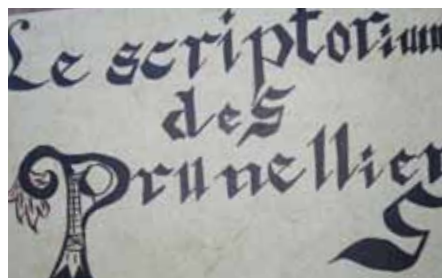 Le scriptorium
des
Prunellier
S